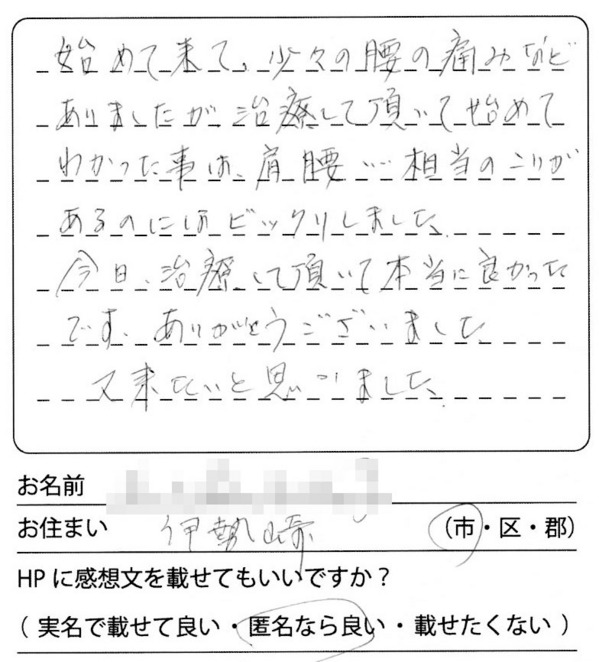 始めて来て、少々の腰の痛みなど
ありましたが治療して頂いて始めて
わかった事は、肩腰…相当のこりが
あるのにはビックリしました
今日、治療して頂いて本当に良かった
です、ありがとうございました
又来たいと思いました
お名前
お住まい 伊勢崎 (市・区・郡)
HPに感想文を載せてもいいですか？
( 実名で載せて良い・匿名なら良い・載せたくない )